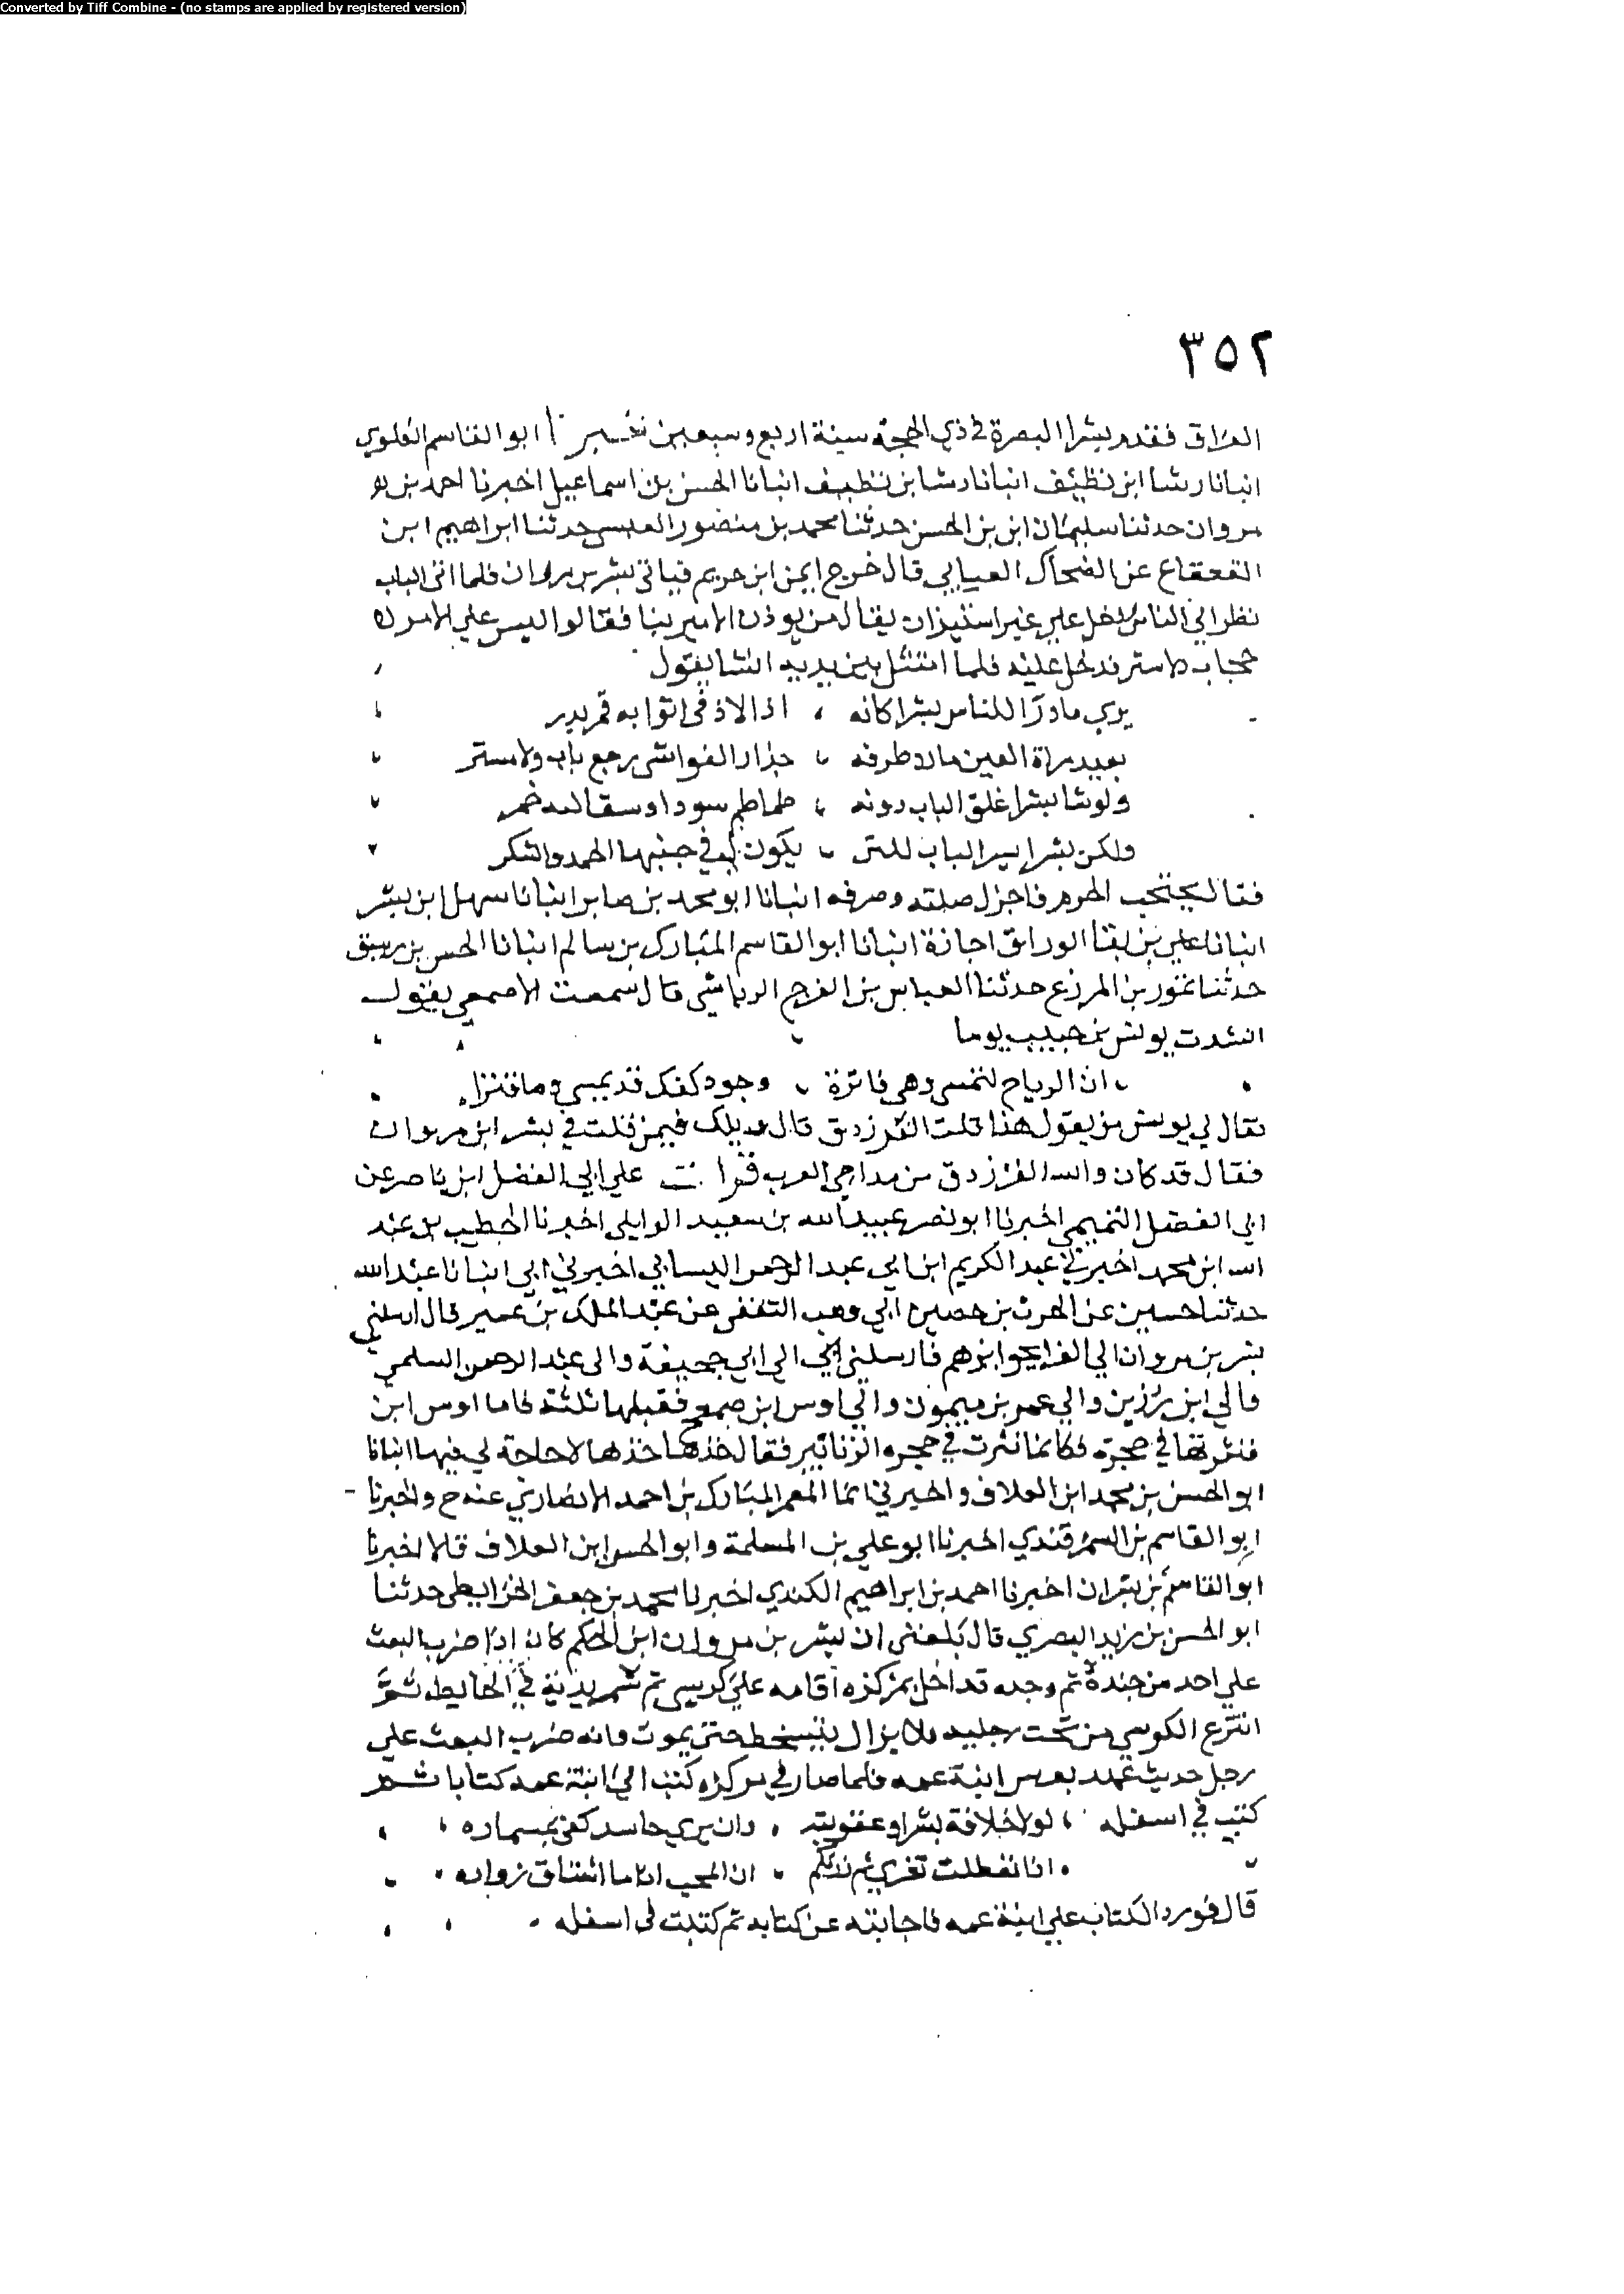 Converted by Tiff Combine - (no stamps are applied by registered version)
٣٥٢
العراق فقدم بشرا البصرة في ذي الحجة سنة اربع وسبعين اخبرنا ابو القاسم العلوي
انبانا رشا ابن نظيف انبانا رشا بن نظيف انبانا الحسن بن اسماعيل اخبرنا احمد بن
مروان حدثنا سليمان ابن بن الحسن حدثنا محمد بن منصور العبسي حدثنا ابراهيم ابن
القعقاع عن الضحاك العيابي قال خرج ايمن ابن خريم فياتي بشر بن مروان فلما اتى الباب
نظر الي الناس يدخل علي غير استيذان يقال من يوذن الامير بنا فقالوا ليس علي الامير
حجاب ولا ستر فدخل عليه فلما امتثل بين يديه انشا يقول
يري مادرا للناس بشرا كانه ، اذا لاذ في اثوابه قمر بدر
بعيد مراة العين مارد طرفه ، حذار الغواشي رجع باب ولا ستر
ولو شا بشرا غلق الباب دونه ، طماطم سود او سقالبه حمر
ولكن بشرا يسر الباب للتي ، يكون له في جنبها الحمد والشكر
فقال يحتجب الحرم فاجزل صلته وصرفه انبانا ابو محمد بن صابر انبانا سهل ابن بشر
انبانا علي بن بقا الوراق اجازة انبانا ابو القاسم المبارك بن سالم انبانا الحسن بن رسيق
حدثنا تموز بن المرزع حدثنا العباس بن الفرج الرياشي قال سمعت الاصمعي يقول
انشدت يونس بن حبيب يوما
ان الرياح لتمسي وهي فاترة ، وجود كفك قد يمسي وما فترا
فقال لي يونس من يقول هذا قلت الفرزدق قال ويلك فيمن قلت في بشر ابن مروان
فقال قد كان والله الفرزدق من مداحي العرب قرات علي ابي الفضل ابن ناصر عن
ابي الفضل التميمي اخبرنا ابو نصر عبيد الله بن سعيد الوايلي اخبرنا الخطيب بن عبد
الله ابن محمد اخبرني عبد الكريم ابن ابي عبد الرحمن اليسابي اخبرني ابي انبانا عبد الله
حدثنا حسين عن الحرث بن حصين ابي وهب الثقفي عن عبد الملك بن عمير قال ارسلني
بشر بن مروان الي القرا بجوايزهم فارسلني الي ابي جحيفة والي عبد الرحمن السلمي
والي ابن رزين والي عمر بن ميمون والي اوس ابن ضمعج فقبلها ثلثة فاما اوس ابن
فنثرتها في حجره فكانما نثرت في حجره الزنابير فقال خذها خذها لا حاجة لي فيها انبانا
ابو الحسن بن محمد ابن العلاف واخبرني انما المعمر المبارك بن احمد الانصاري عنه ح واخبرنا
ابو القاسم بن السمرقندي اخبرنا ابو علي بن المسلمة وابو الحسن ابن العلاف قالا اخبرنا
ابو القاسم بن بشران اخبرنا احمد بن ابراهيم الكندي اخبرنا محمد بن جعفر الخرايطي حدثنا
ابو الحسن بن يزيد البصري قال بلغني ان بشر بن مروان ابن الحكم كان اذا ضرب البعث
علي احد من جنده ثم وجده قد اخل بمركزه اقامه علي كرسي ثم سمر يديه في الحايط ثم
انتزع الكرسي من تحت رجليه فلا يزال يتشحط حتى يموت وانه ضرب البعث علي
رجل حديث عهد بعرس ابنة عمه فلما صار في مركزه كتب الي ابنة عمه كتابا ثم
كتب في اسفله ، لولا خلافة بشر او عقوبته ، وان يري حاسد كفي بمسماره ،
اذا لعطلت ثغري ثم زرتكم ، ان المحب اذا ما اشتاق زواره ،
قال فورد الكتاب علي ابنة عمه فاجابته عن كتابه ثم كتبت في اسفله